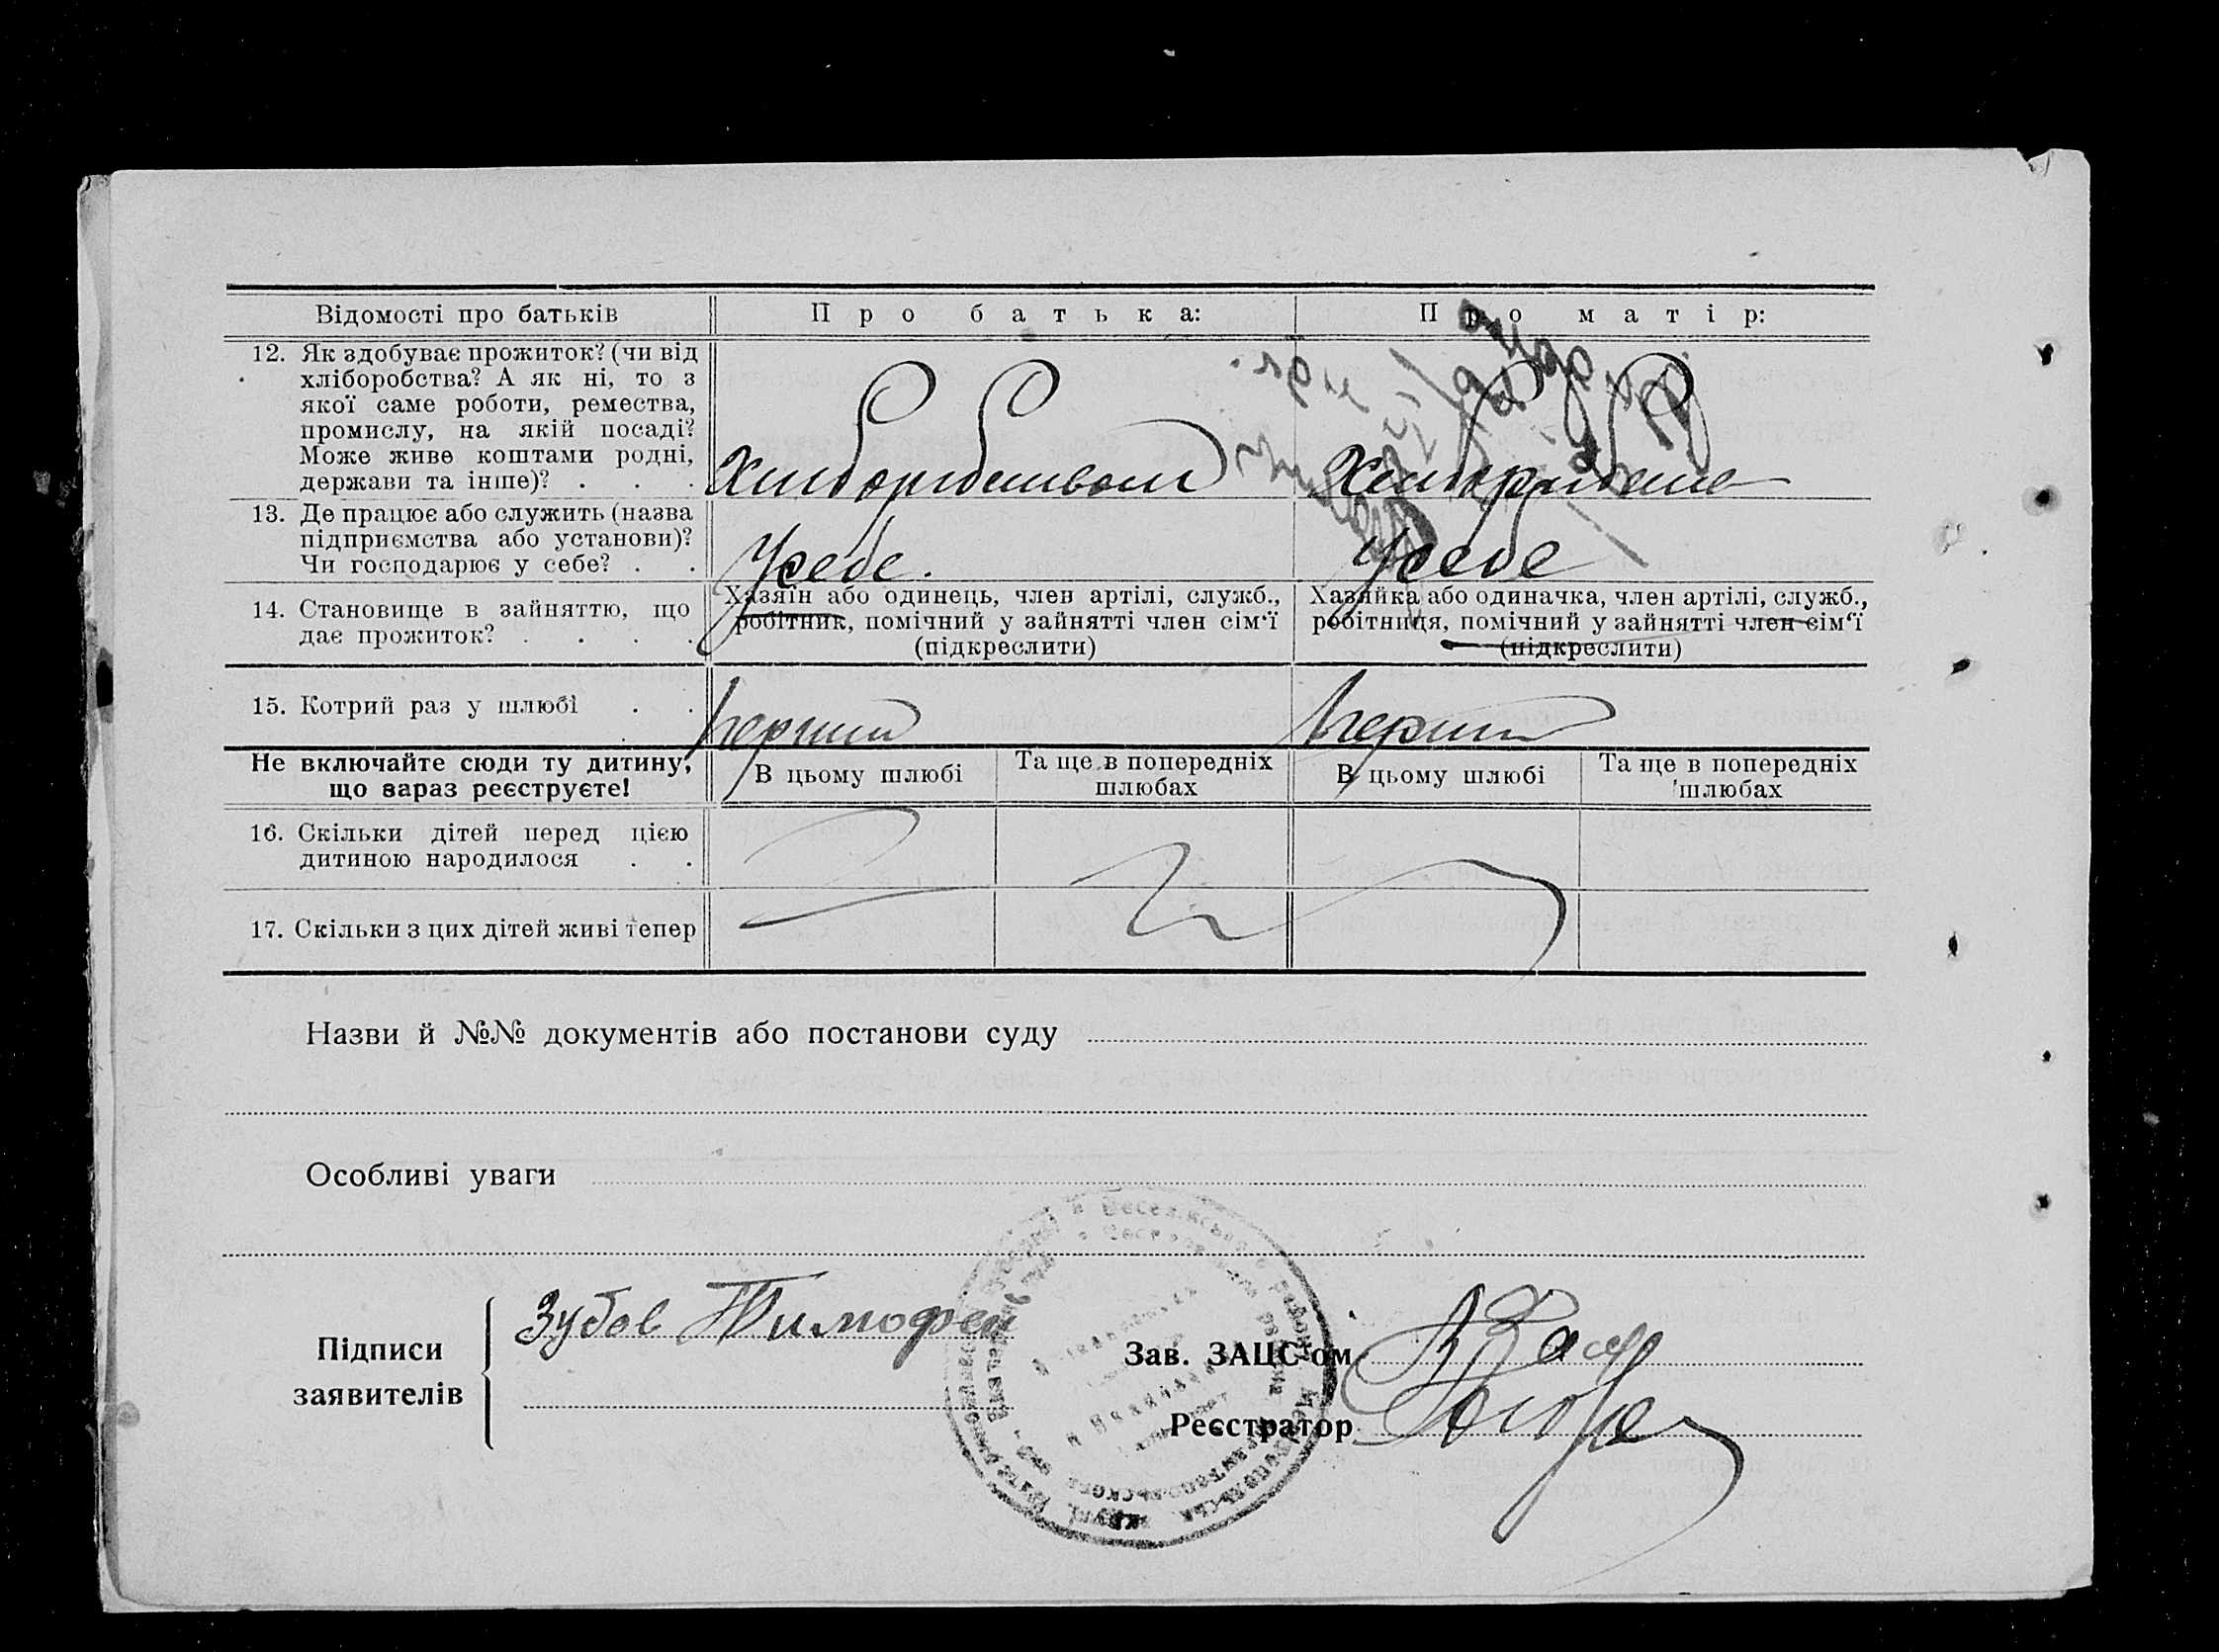 Відомості про батьків
Про батька:
Про матір:
12. Як здобуває прожиток? (чи від
хліборобства? А як ні, то з
якої саме роботи, ремества,
промислу, на якій посаді?
Може живе коштами родні,
держави та інше)? . . .
Хлиборобством
13. Де працює або служить (назва
підприємства або установи)?
Чи господарює у себе? . .
У себе.
У себе
14. Становище в зайняттю, що
дає прожиток? . . . .
Хазяїн або одинець, член артілі, служб.,
робітник, помічний у зайнятті член сім'ї
(підкреслити)
Хазяйка або одиначка, член артілі, служб.,
робітниця, помічний у зайнятті член сім'ї
(підкреслити)
15. Котрий раз у шлюбі . .
первий
первий
Не включайте сюди ту дитину,
що зараз реєструєте!
В цьому шлюбі
Та ще в попередніх
шлюбах
В цьому шлюбі
Та ще в попередніх
шлюбах
16. Скільки дітей перед цією
дитиною народилося . .
17. Скільки з цих дітей живі тепер
Назви й №№ документів або постанови суду
Особливі уваги
Підписи
заявителів
Зубов Тимофей
Зав. ЗАЦС'ом
Реєстратор